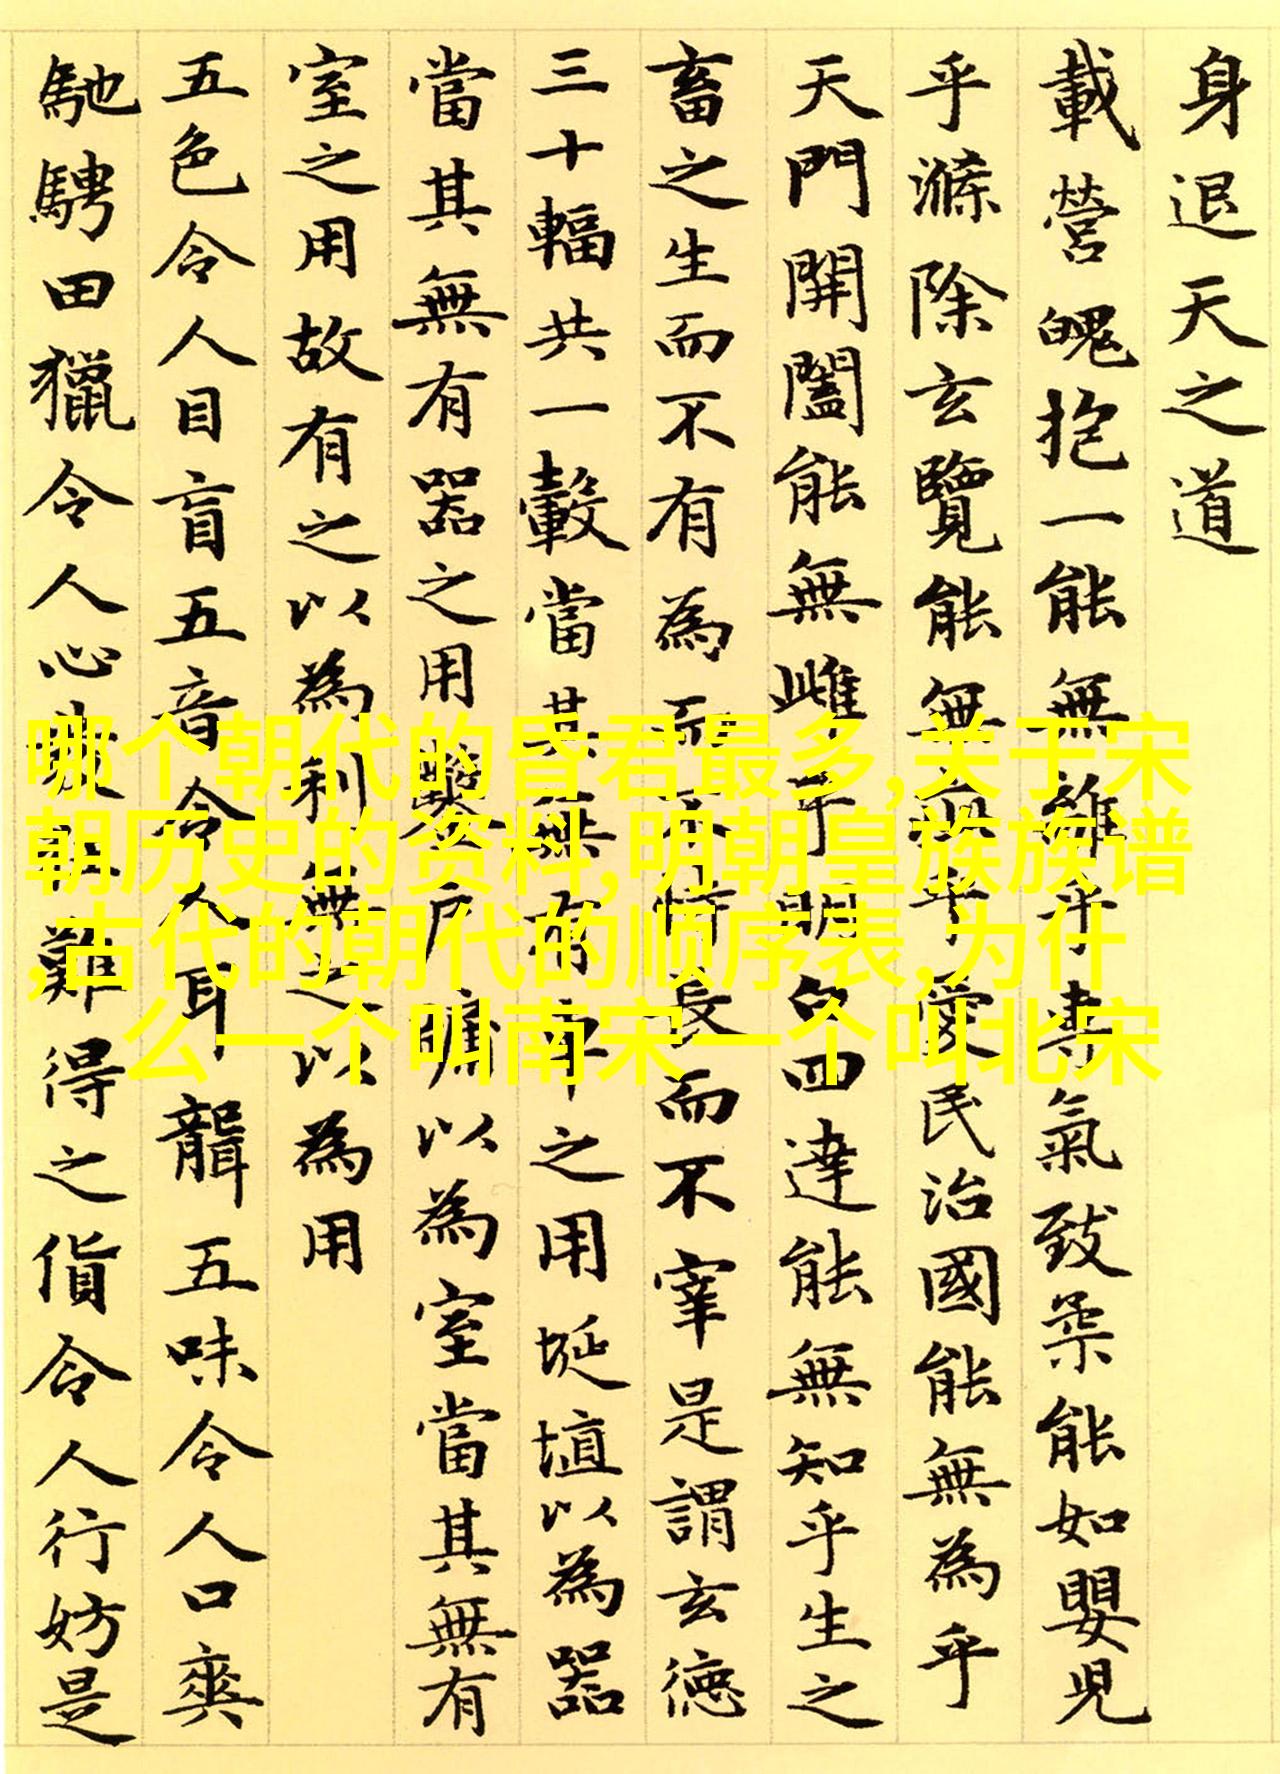 身退天之道
載營魄抱一能無離乎專氣致柔能如嬰児
乎滌除玄覽能無疵乎愛民治國能無為乎
天門開闔能無雌乎明白四達能無知乎生之
畜之生而不有為而不恃長而不宰是謂玄德
三十輻共一轂當其無有車之用埏埴以為器
當其無有器之用鑿戶牖以為室當其無有
室之用故有之以為利無之以為用
五色令人目盲五音令人耳聾五味令人口爽
馳騁田獵令人心發狂難得之貨令人行妨是
哪个朝代的昏君最多,关于宋
朝历史的资料,明朝皇族族谱
,古代的朝代的顺序表,为什
么一个叫南宋一个叫北宋